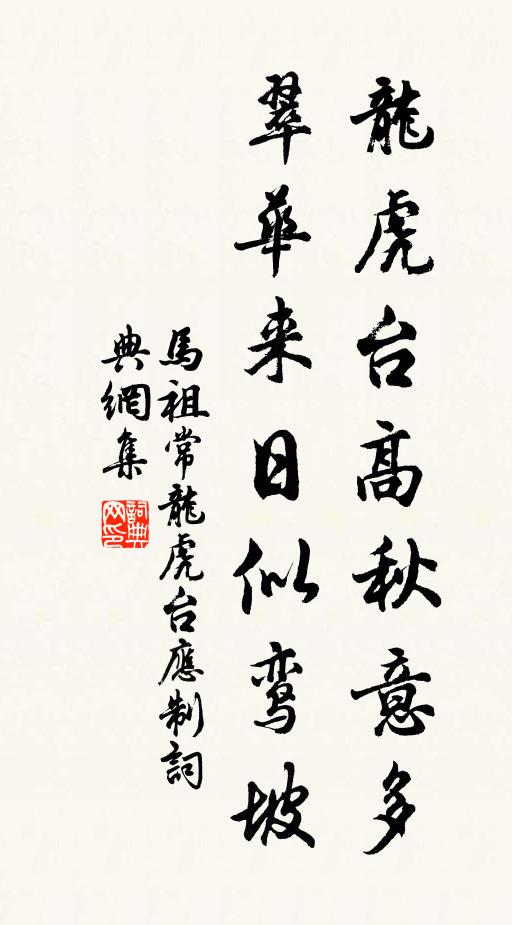 龍虎台高秋意多
翠華来日似鸾坡
馬祖常龍虎台應制詞
典網集
詞典网印